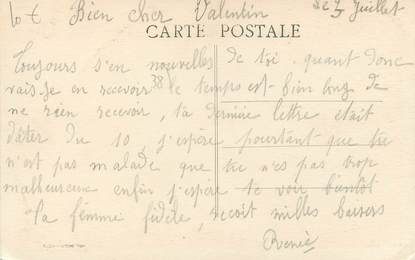 Bien cher Valentin le 7 Juillet
CARTE POSTALE
Toujours s'en nouvelles de toi quant donc
vais-je en recevoir le temps est bien long de
ne rien recevoir, ta dernière lettre était
dâter du 10, j'espère pourtant que tu
n'est pas malade que tu n'es pas trop
malheureux enfin j'espère te voir bientôt
Ta femme fidèle, recoit milles baisers
Renée